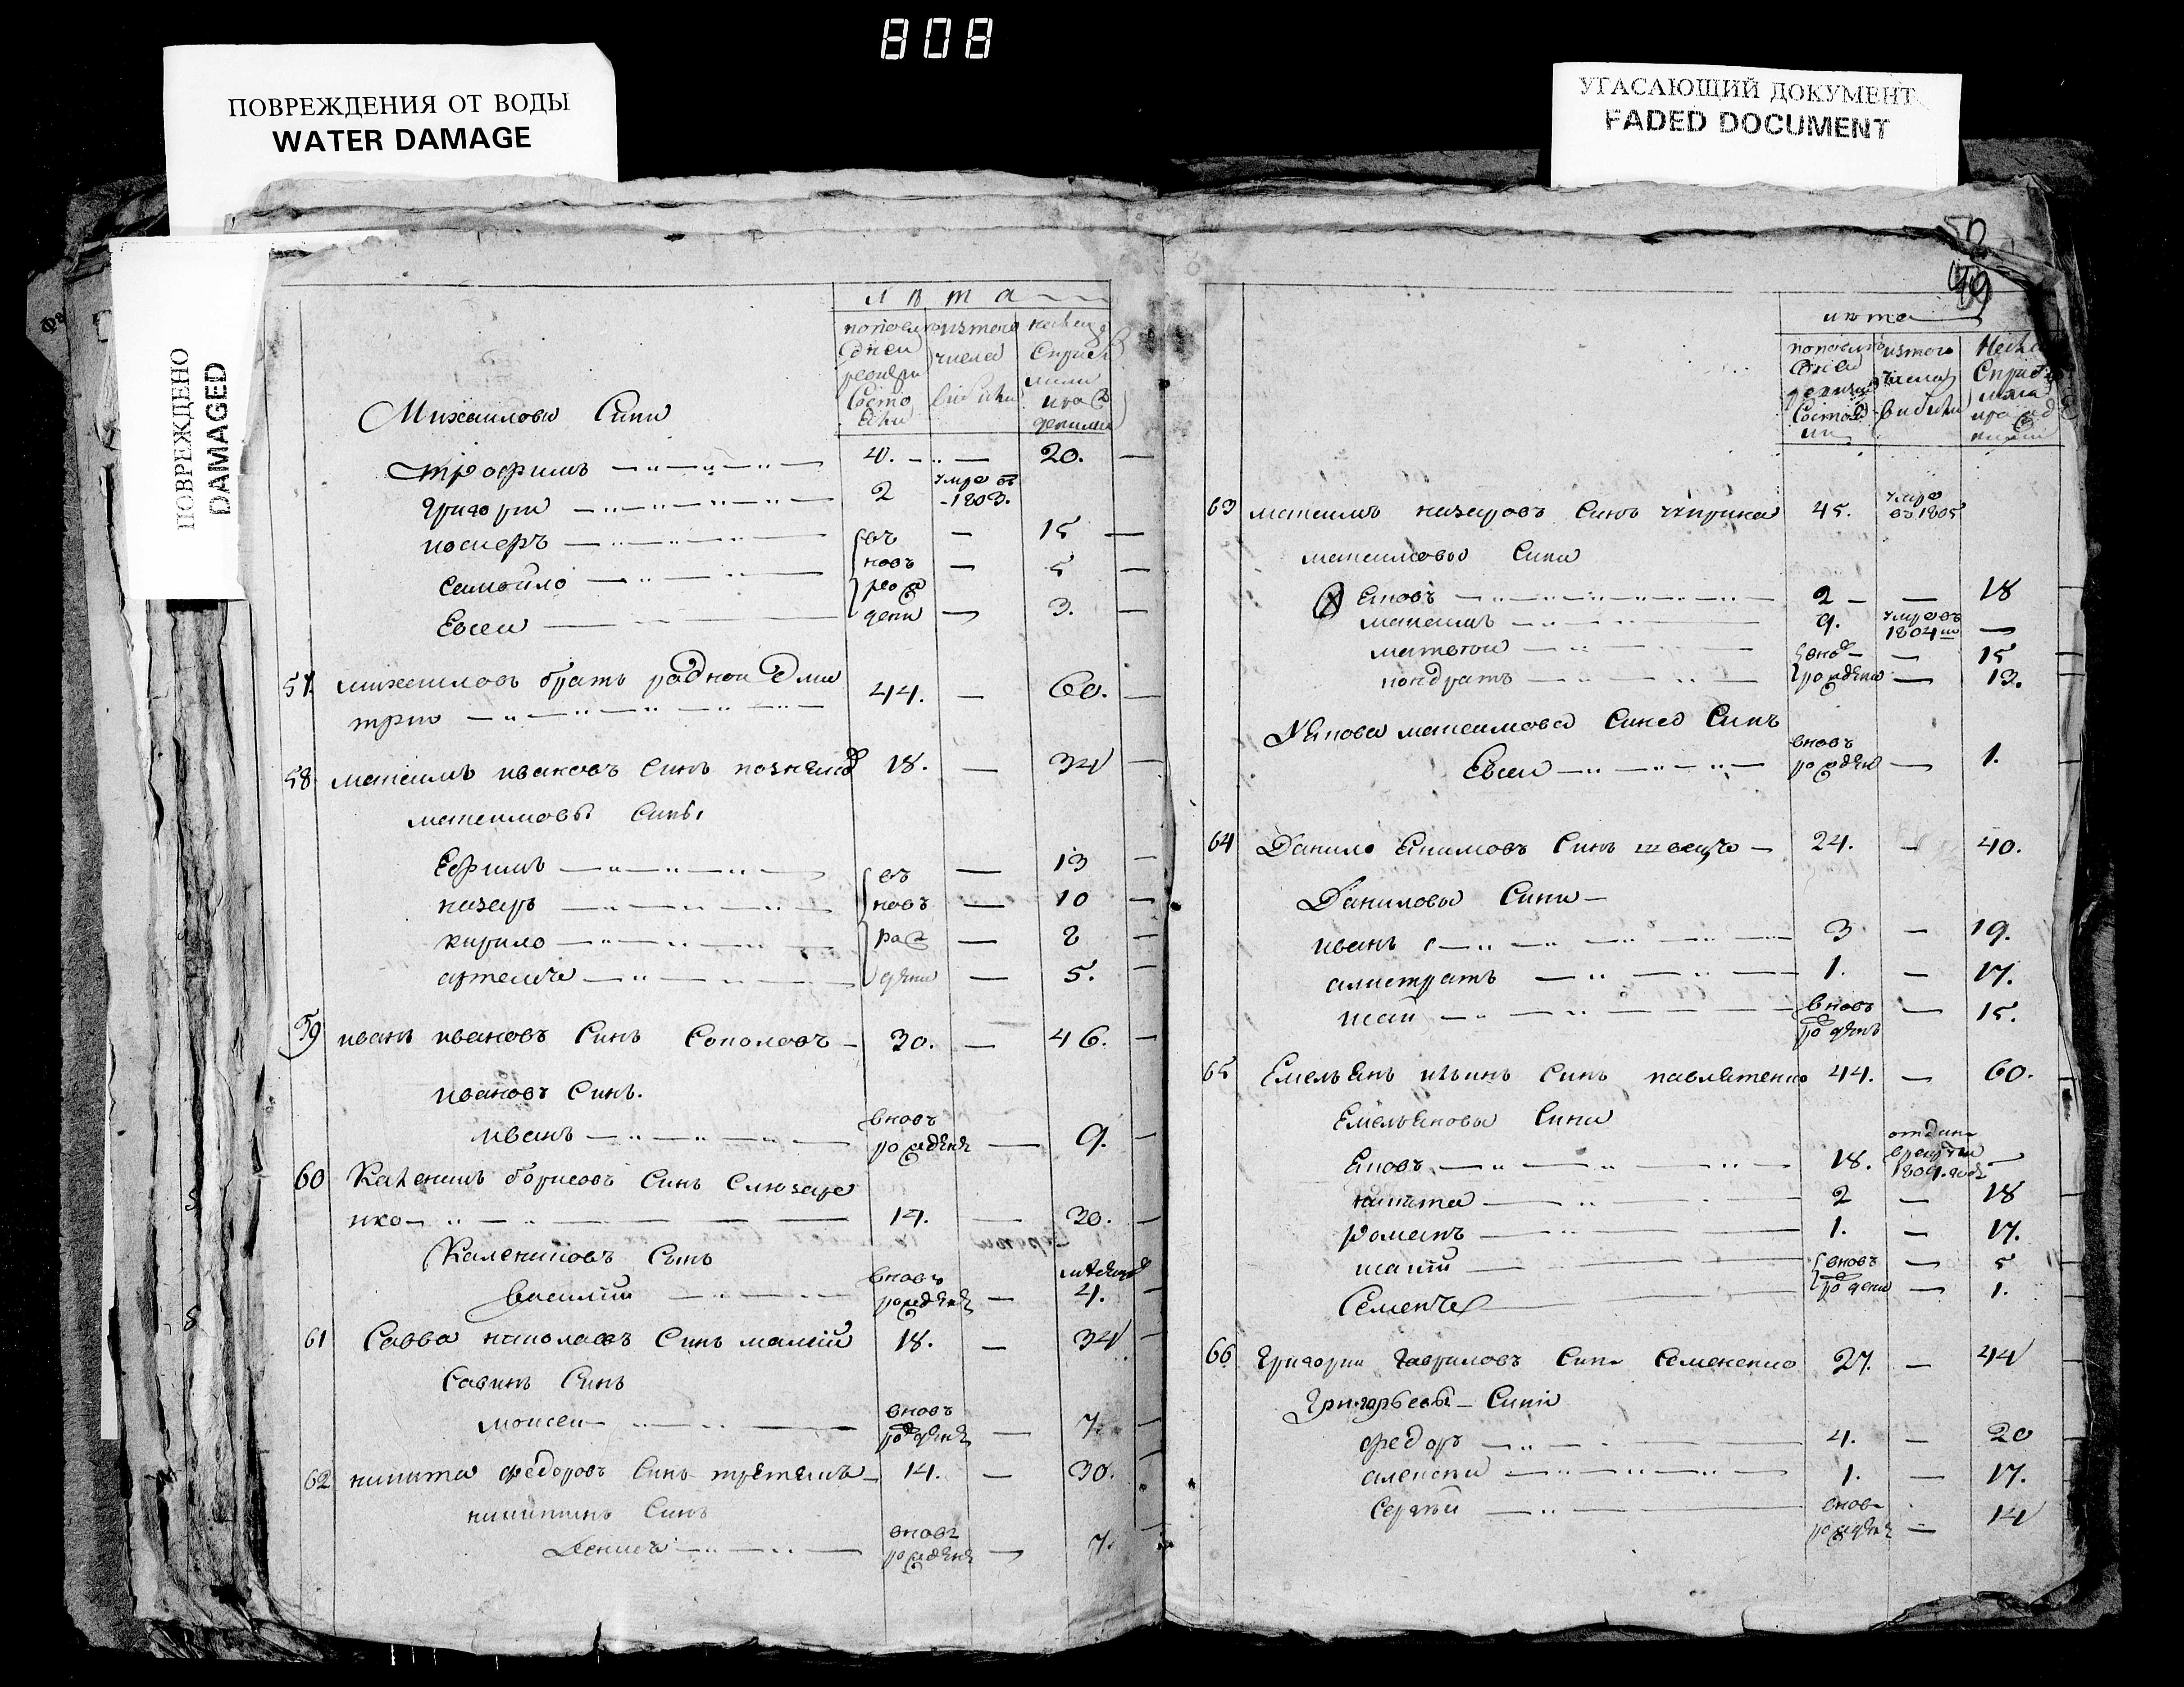 808
ПОВРЕЖДЕНИЯ ОТ ВОДЫ
WATER DAMAGE
УГАСАЮЩИЙ ДОКУМЕНТ
FADED DOCUMENT
ПОВРЕЖДЕНО
DAMAGED
лѣта
Михаилови Сини
трофимъ 4. 20.
григори 2 умре въ 1803.
15
самойло новъ 5
Евсеи 3.
57 михаиловъ братъ родной Дми
трій 44. 60.
58 максимъ ивановъ синъ 18. 34
максимовы сины
Ефимъ 13
назаръ новъ 10
кирило 8
артемъ 5.
59 иванъ ивановъ Синъ Соколовъ 30. 46.
ивановъ Синъ.
иванъ вновъ рожденъ 9.
60 борисовъ Синъ Слюзаре
нко 14. 30.
Калениковъ Синъ
василий вновъ рожденъ 4.
61 Савва николаевъ Синъ малий 18. 34
Савинъ Синъ
моисеи вновъ рожденъ 7.
62 никита федоровъ Синъ 14. 30.
никитинъ Синъ
Денисъ вновъ рожденъ 7.
50
49
лѣта
63 максимъ назаровъ Синъ чиприна 45. умре въ 1805
максимовы Сини
Яковъ 2 18
максимъ 9. умре въ 1804
матвеи вновъ 15
кондратъ рождены 13.
Якова максимова Сина Синъ
Евсеи вновъ рожденъ 1.
64 Данило Якимовъ Синъ швецъ 24. 40.
Данилови Сини
иванъ 3 19.
калистратъ 1. 17.
исай вновъ рожденъ 15.
65 Емельянъ ильинъ Синъ павлятенко 44. 60.
Емельянови Сини
Яковъ 18. отданъ врекрути 1804. годѣ
никита 2 18
романъ 1. 17.
вновъ 5
Семенъ рождени 1.
66 Григории Гавриловъ Синъ Семененко 27. 44
Григорьевы Сини
федоръ 4. 20
алексеи 1. 17.
Сергѣи вновъ рожденъ 14